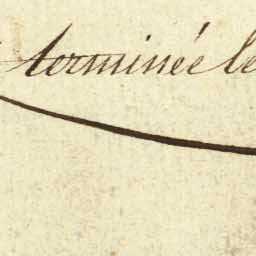 terminée le